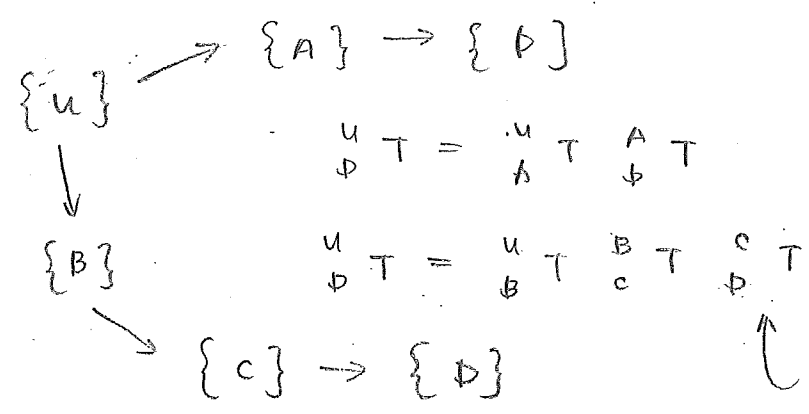 {A} → {D}
{U}
U D T = U A T A D T
{B}
U D T = U B T B C T C D T
{C} → {D}